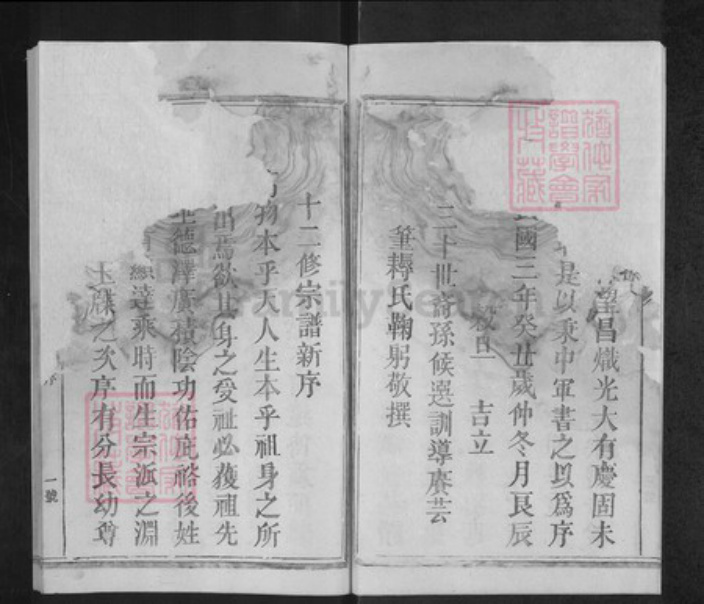 望昌熾光大有慶固未
是以秉中軍書之以為序
國三年癸丑歲仲冬月良辰
吉立
三十世裔孫候選訓導賡芸
筆耨氏鞠躬敬撰
十二修宗譜新序
物本乎天人生本乎祖身之所
出焉欲其身之受祉必獲祖先
德澤廣積陰功佑庇裕後姓
達乘時而生宗派之淵
玉牒之次序有分長幼尊
序
一號